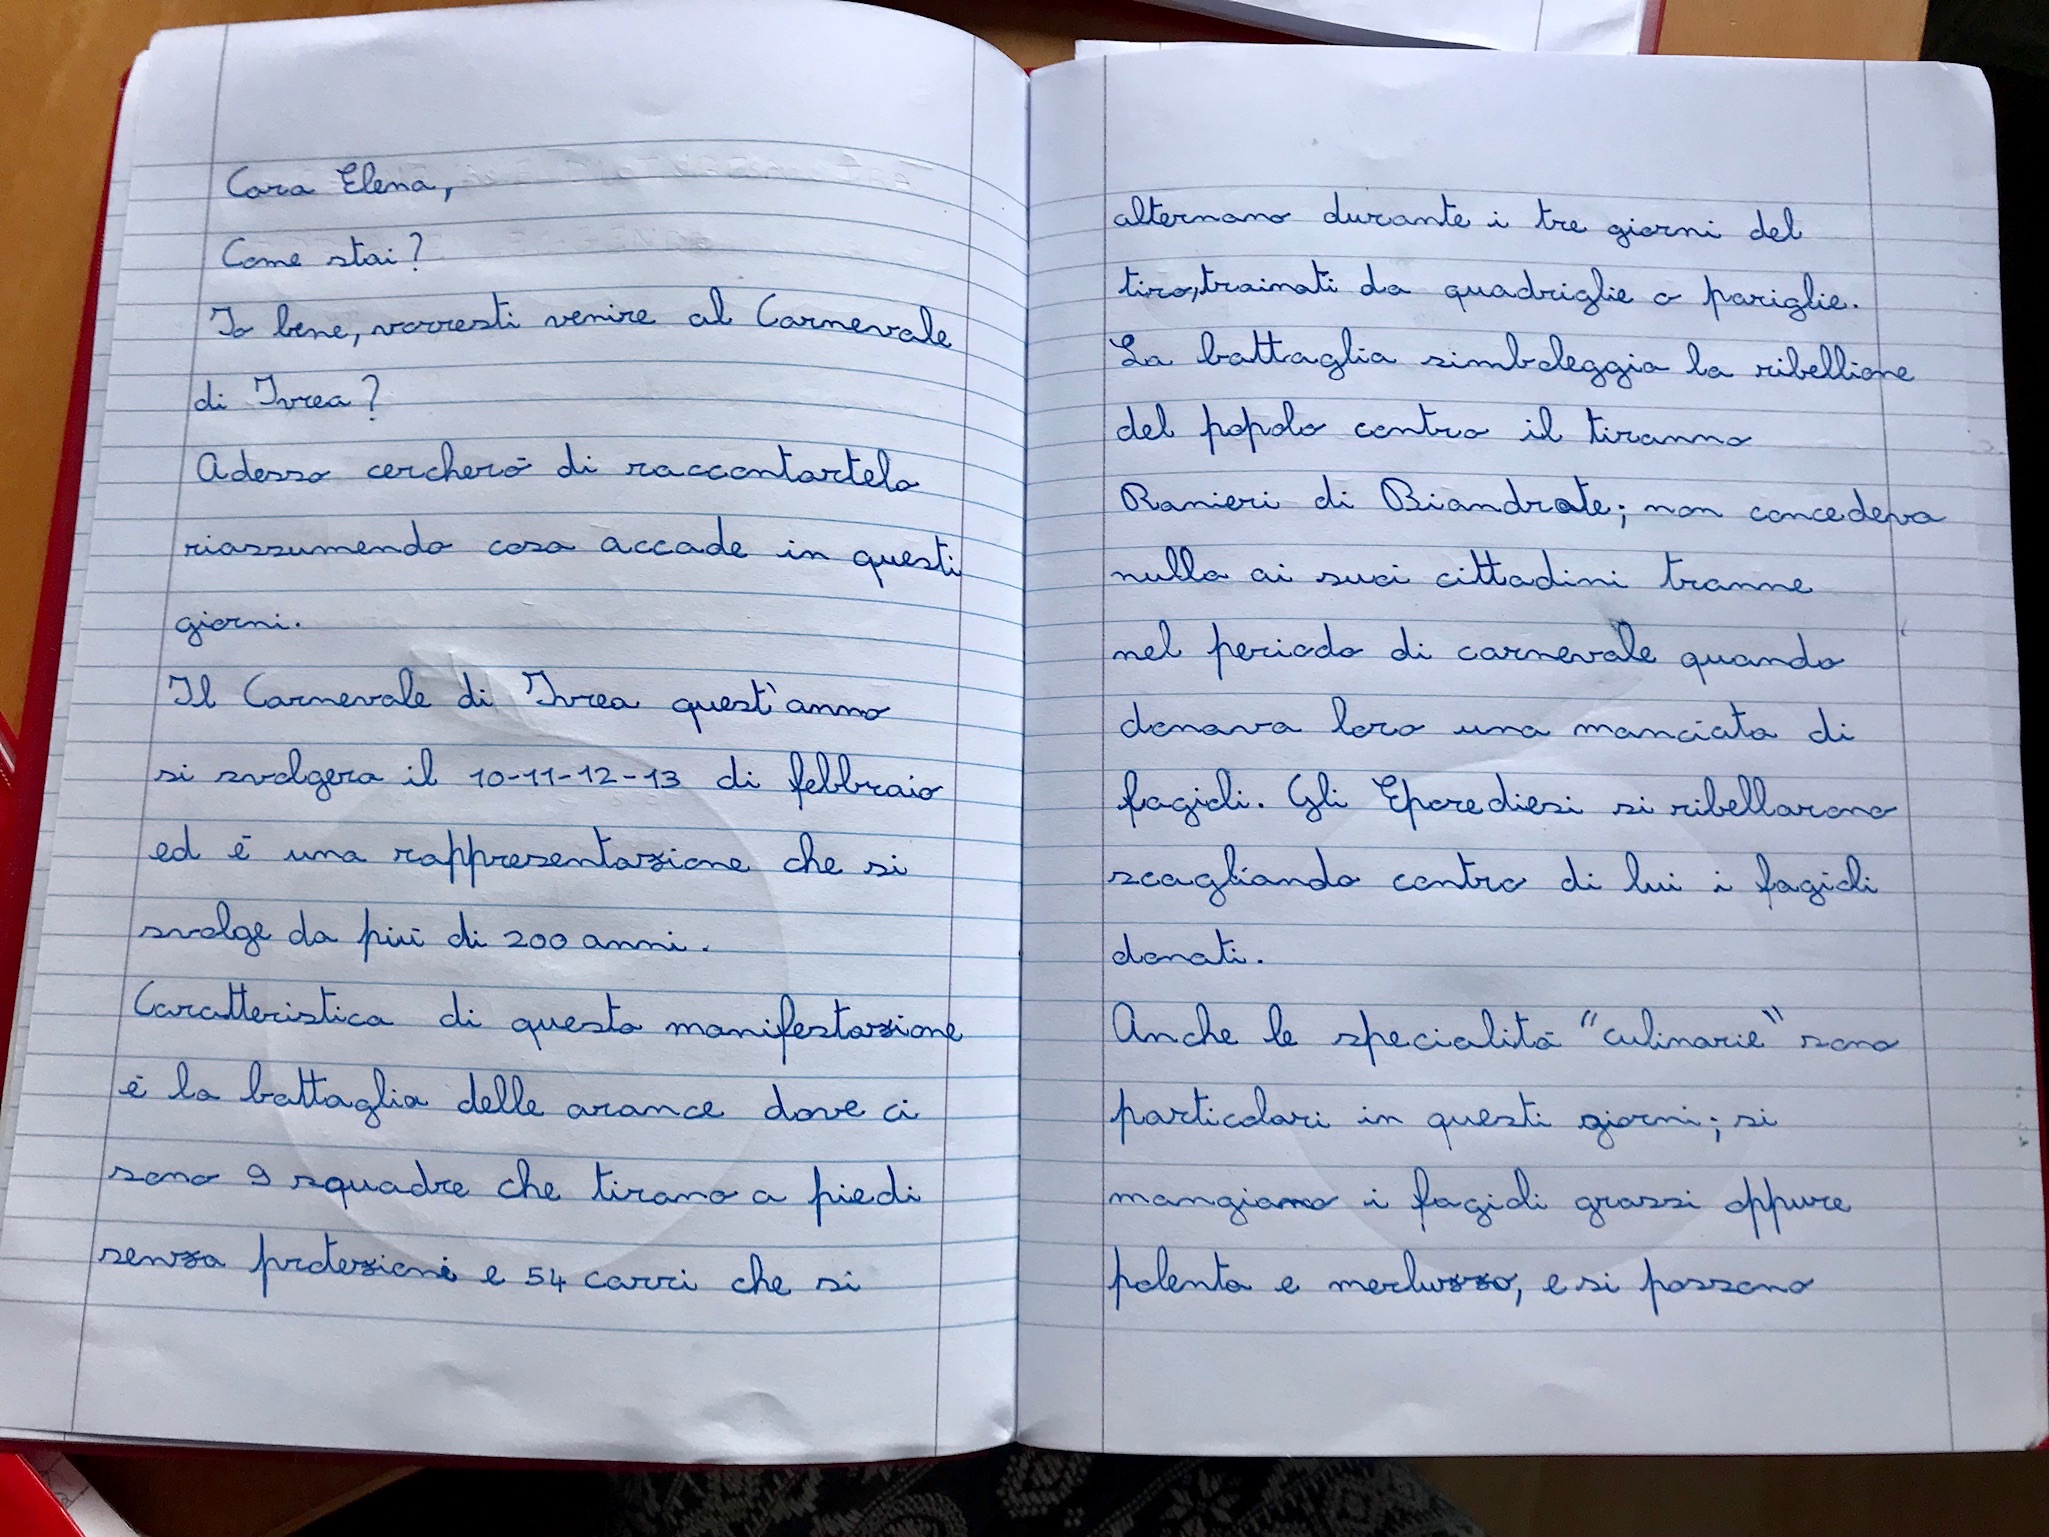 Cara Elena,
Come stai?
Io bene, vorresti venire al Carnevale
di Ivrea?
Adesso cercherò di raccontartelo
riassumendo cosa accade in questi
giorni.
Il Carnevale di Ivrea quest'anno
si svolgera il 10-11-12-13 di febbraio
ed è una rappresentazione che si
svolge da più di 200 anni.
Caratteristica di questa manifestazione
è la battaglia delle arance dove ci
sono 9 squadre che tirano a piedi
senza protezioni e 54 carri che si
alternano durante i tre giorni del
tiro, trainati da quadriglie o pariglie.
La battaglia simboleggia la ribellione
del popolo contro il tiranno
Ranieri di Biandrate; non concedeva
nulla ai suoi cittadini tranne
nel periodo di carnevale quando
donava loro una manciata di
fagioli. Gli Eporediesi si ribellarono
scagliando contro di lui i fagioli
donati.
Anche le specialità "culinarie" sono
particolari in questi giorni; si
mangiano i fagioli grassi oppure
polenta e merluzzo, e si possono